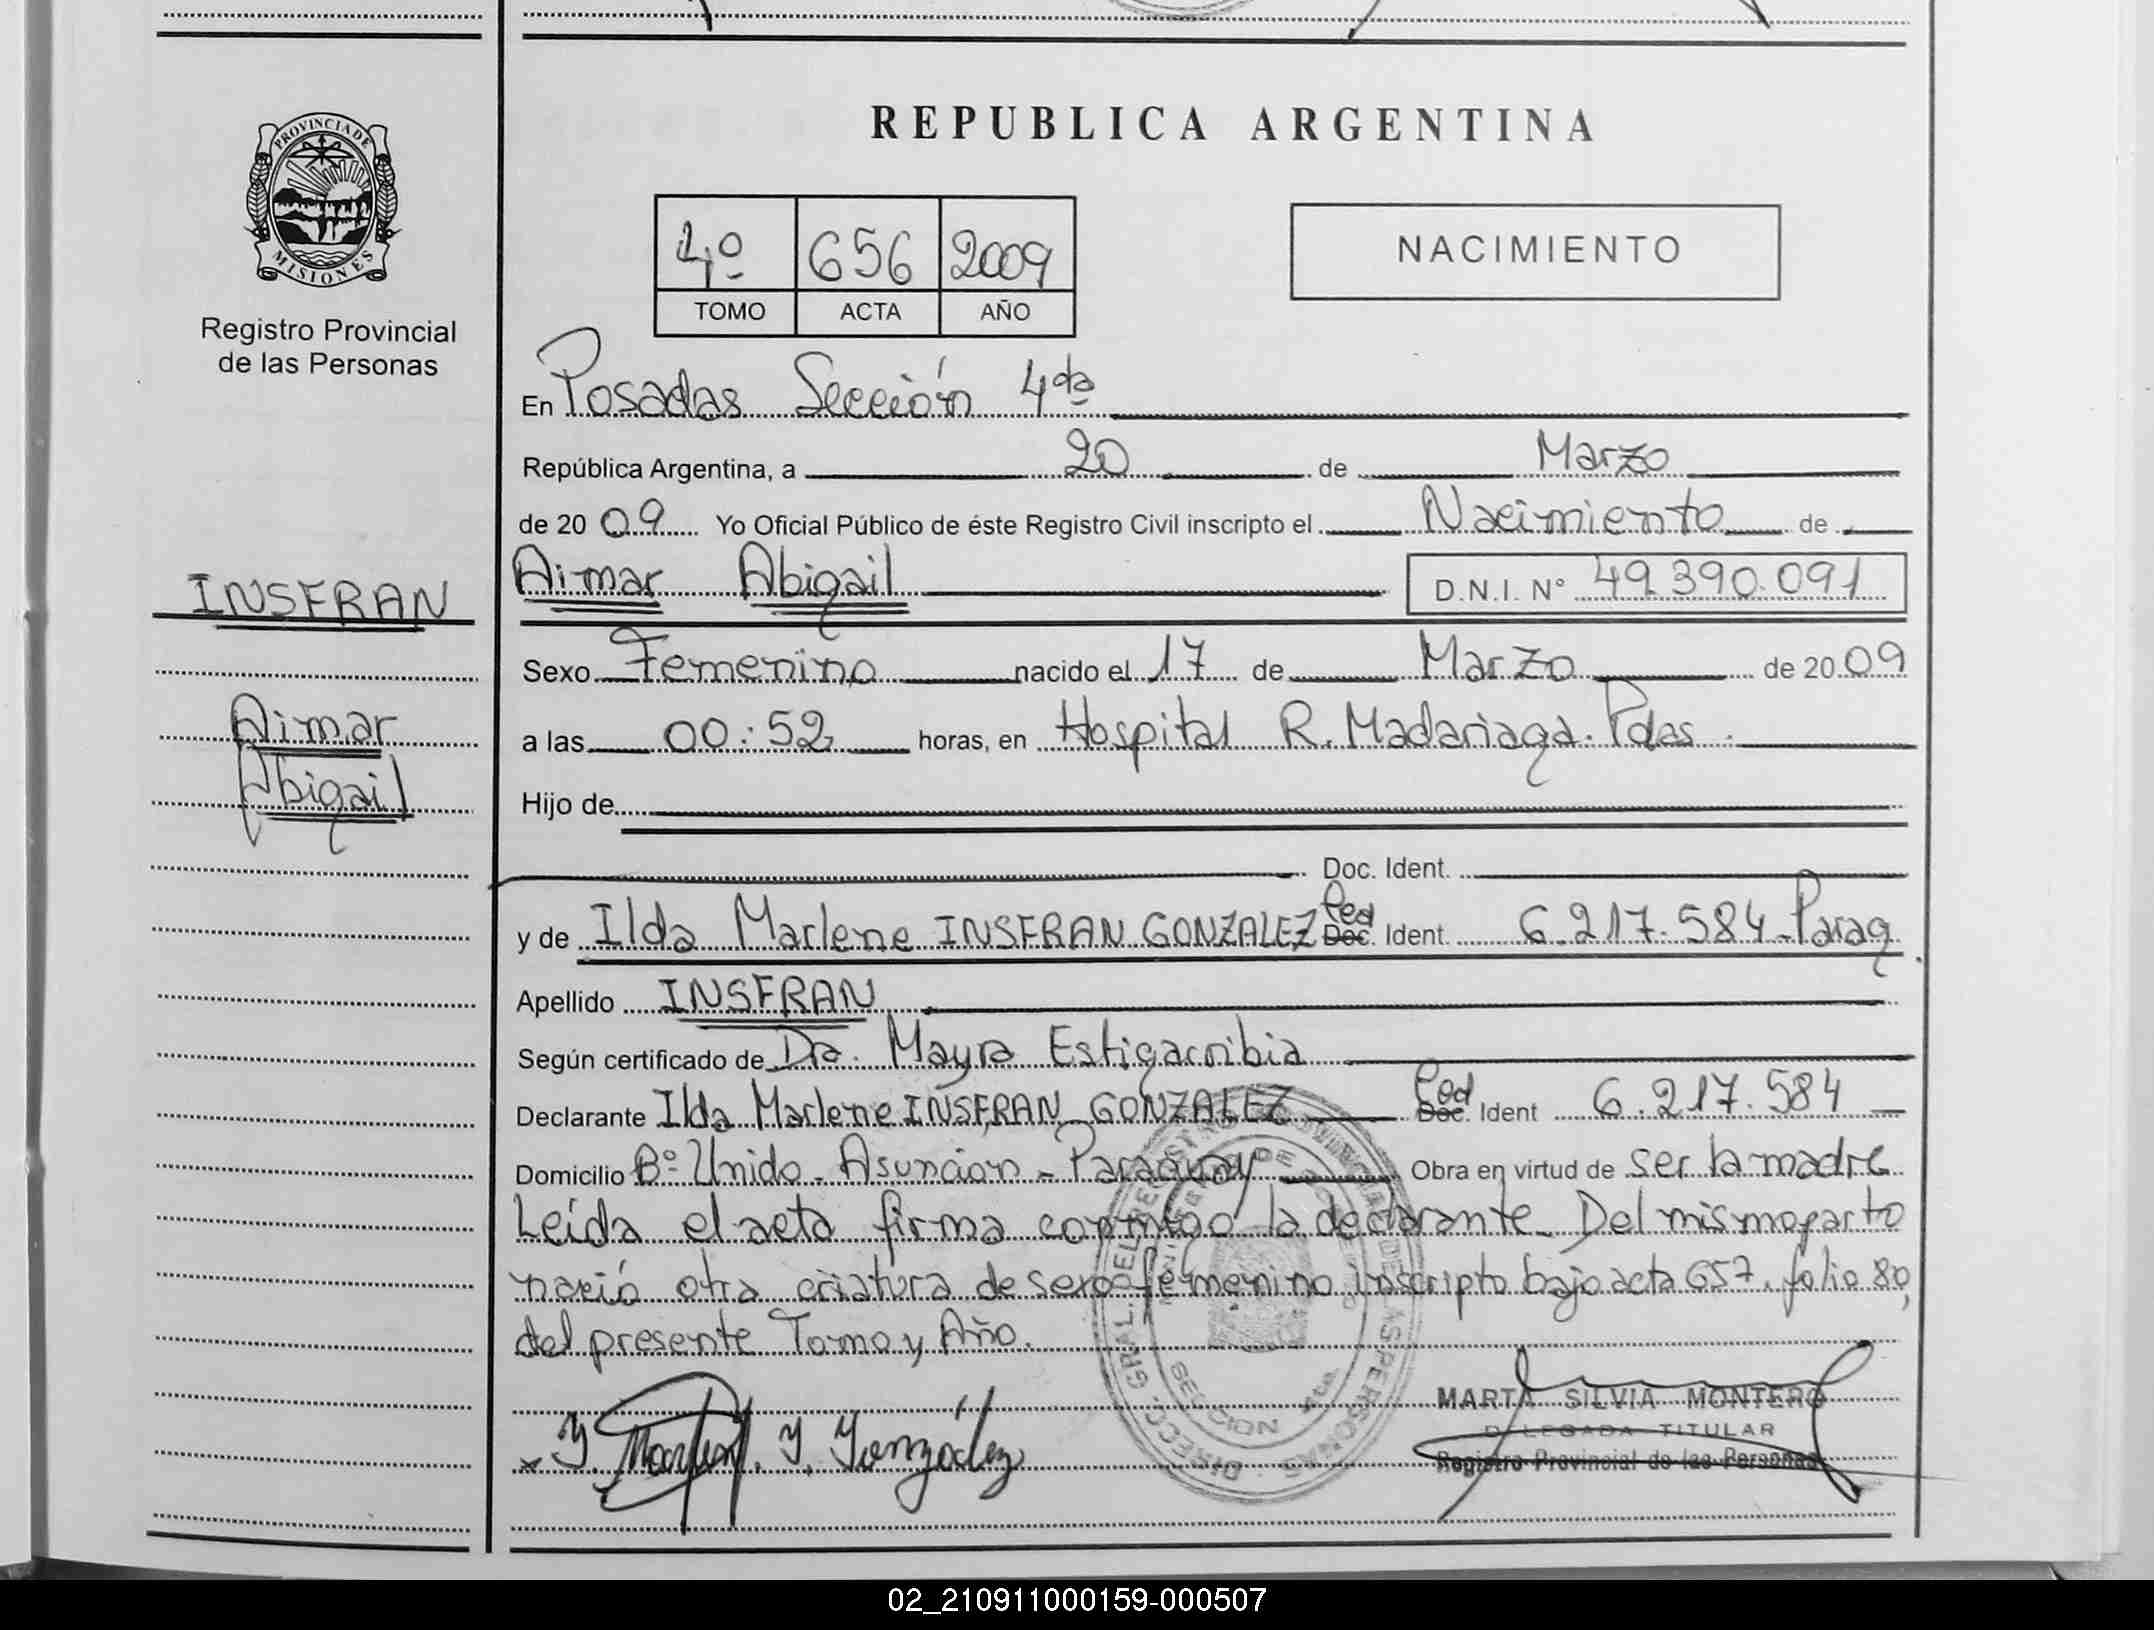 PROVINCIA DE
MISIONES
Registro Provincial
de las Personas
INSFRAN
Aimar
Abigail
REPUBLICA ARGENTINA
4º 656 2009
TOMO ACTA AÑO
NACIMIENTO
En Posadas Sección 4ta
República Argentina, a 20 de Marzo
de 2009 Yo Oficial Público de éste Registro Civil inscripto el Nacimiento de
Aimar Abigail D.N.I. Nº 49.390.091
Sexo Femenino nacido el 17 de Marzo de 2009
a las 00:52 horas, en Hospital R. Madariaga. Pdas.
Hijo de
Doc. Ident.
y de Ilda Marlene INSFRAN GONZALEZ Ced Doc. Ident. 6.217.584-Parag.
Apellido INSFRAN
Según certificado de Dra. Mayra Estigarribia
Declarante Ilda Marlene INSFRAN GONZALEZ Ced Doc. Ident 6.217.584
Domicilio Bº Unido - Asuncion - Paraguay Obra en virtud de ser la madre
Leída el acta firma conmigo la declarante. Del mismo parto
nació otra criatura de sexo femenino inscripto bajo acta 657, folio 80,
del presente Tomo y Año.
MARTA SILVIA MONTERO
DELEGADA TITULAR
Registro Provincial de las Personas
02_210911000159-000507